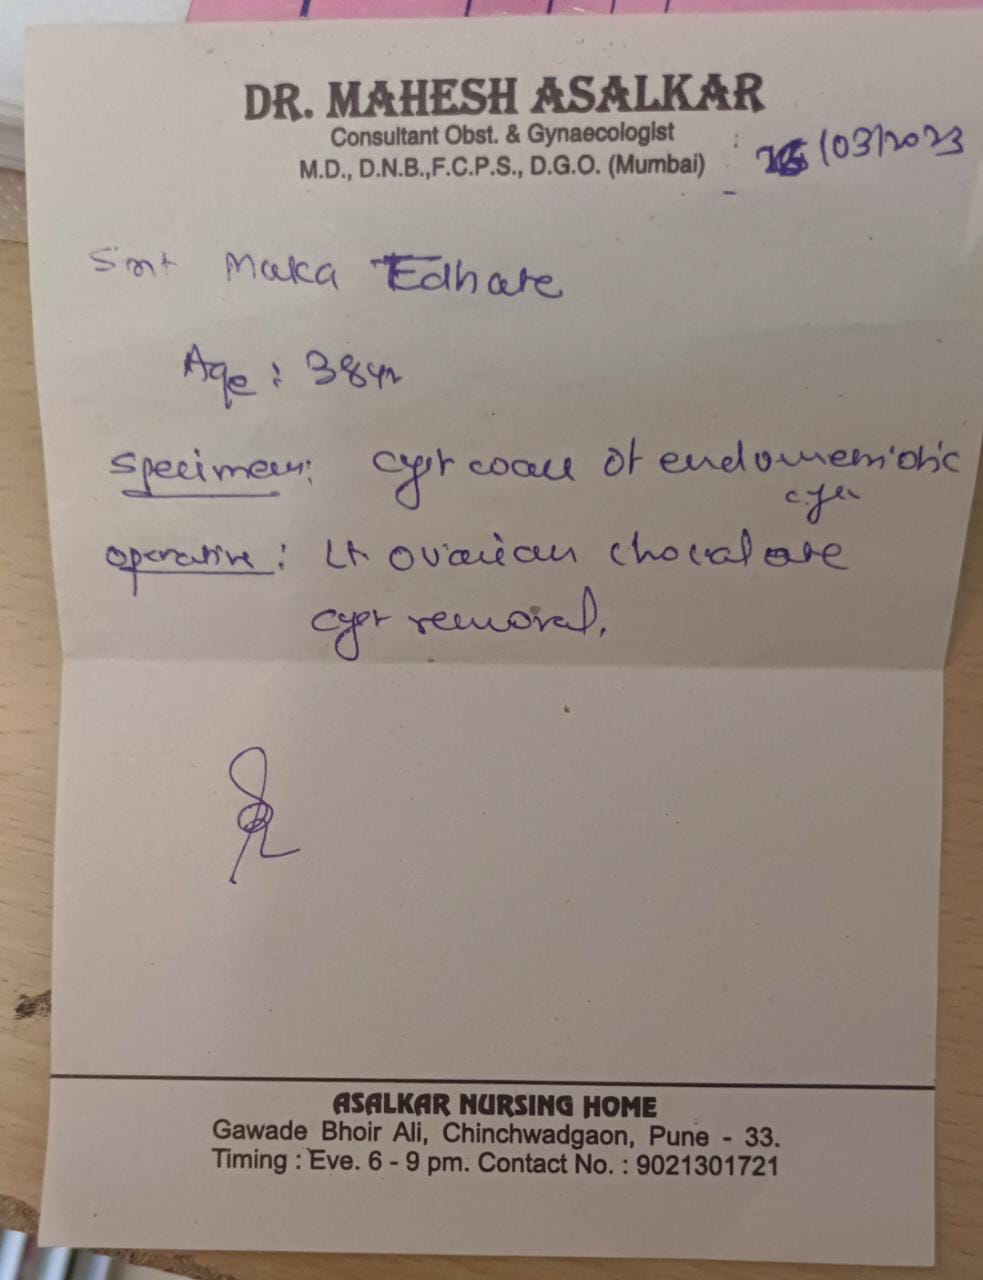 DR. MAHESH ASALKAR
Consultant Obst. & Gynaecologist
M.D., D.N.B.,F.C.P.S., D.G.O. (Mumbai)
/03/2023
Smt Maka Edhate
Age : 38yr
Specimen: cyst wall of endometriotic
cyst
operative : Lt ovarian chocalate
cyst removal.
ASALKAR NURSING HOME
Gawade Bhoir Ali, Chinchwadgaon, Pune - 33.
Timing : Eve. 6 - 9 pm. Contact No. : 9021301721